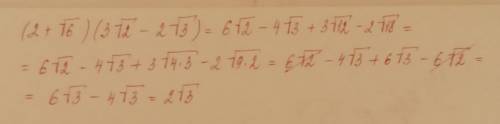 (2 + √6)(3√2 - 2√3) = 6√2 - 4√3 + 3√12 - 2√18 =
= 6√2 - 4√3 + 3√4·3 - 2√9·2 = 6√2 - 4√3 + 6√3 - 6√2 =
= 6√3 - 4√3 = 2√3